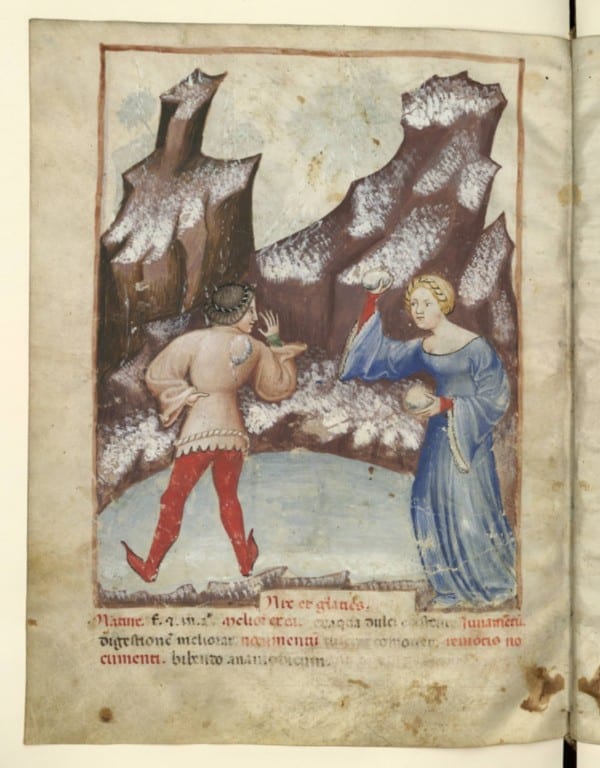 Nix et glacies.
Nature. f. 2. in. 2°. melior ex ea. ex aqua dulci Iuuamentū.
digestionē meliorat. nocumentū tussim cōmouet. remotio no
cumenti. bibendo ante